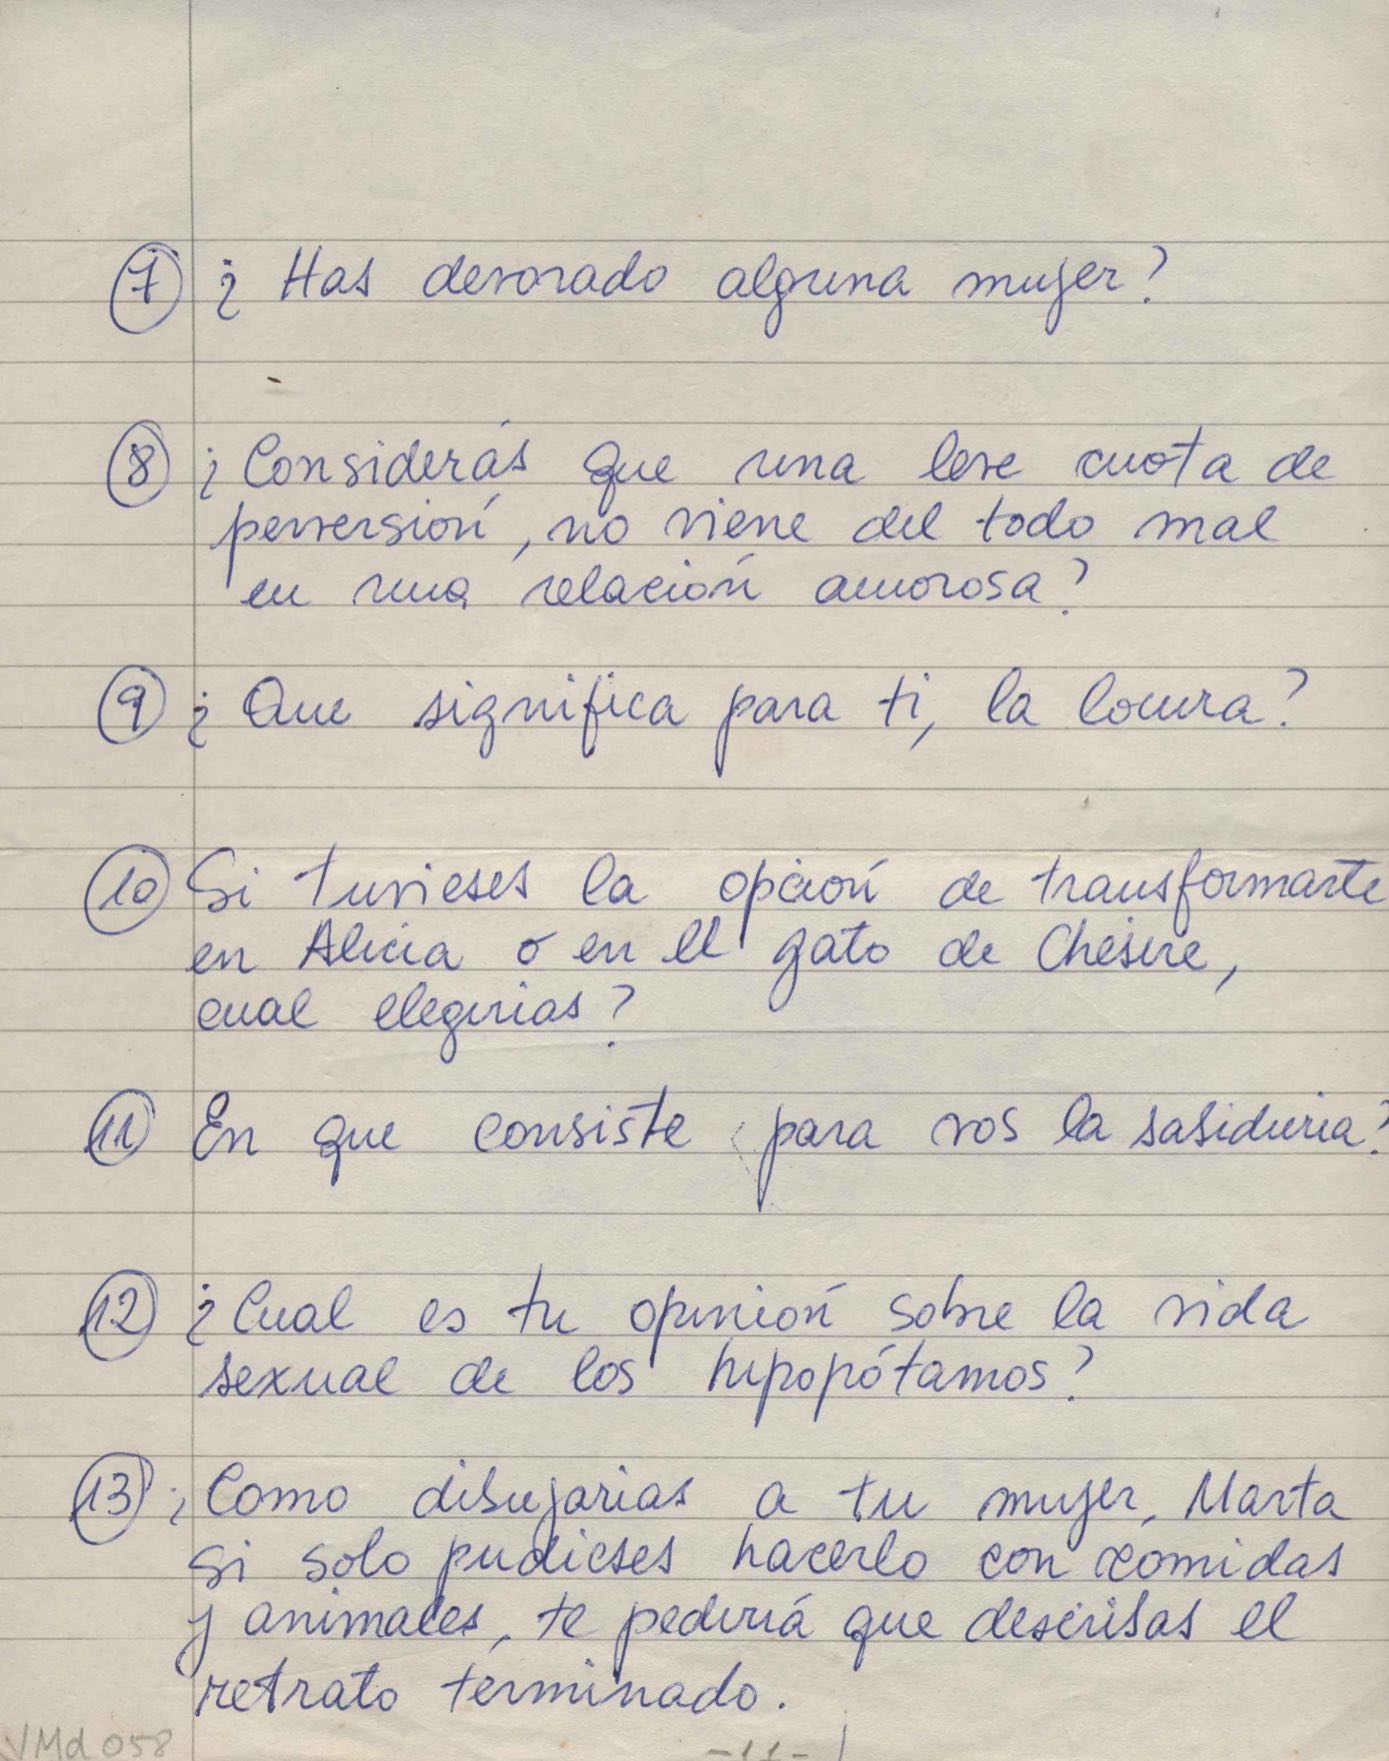 7 ¿Has devorado alguna mujer?
8 ¿Considerás que una leve cuota de
perversión, no viene del todo mal
en una relación amorosa?
9 ¿Que significa para ti, la locura?
10 Si tuvieses la opción de transformarte
en Alicia o en el gato de Chesire,
cual elegirias?
11 En que consiste para vos la sabiduria?
12 ¿Cual es tu opinión sobre la vida
sexual de los hipopótamos?
13 ¿Como dibujarias a tu mujer, Marta
si solo pudieses hacerlo con comidas
y animales, te pediriá que describas el
retrato terminado.
VMd 058
-11-